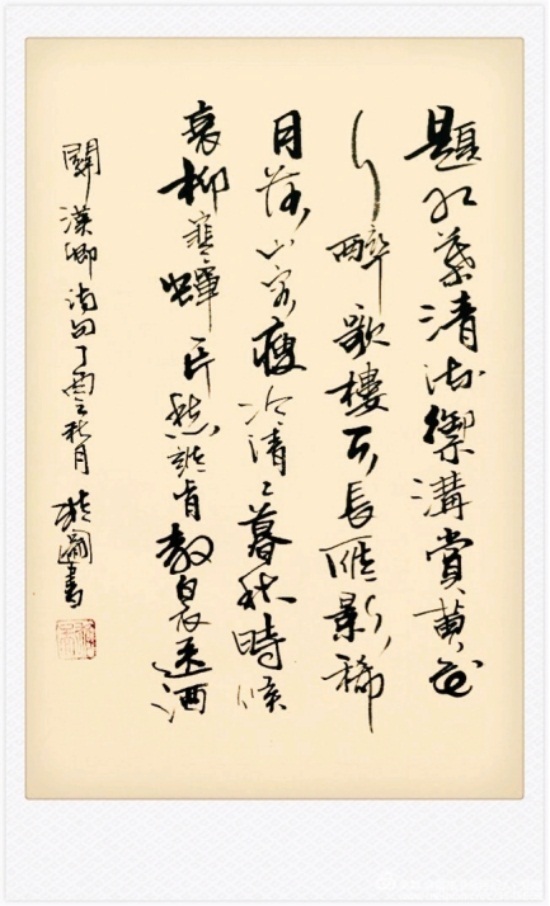 題紅葉清流御溝賞黄花
人醉歌樓天長雁影稀
月落山容瘦冷清〻暮秋時候
衰柳寒蟬一片愁誰肯教白衣送酒
關漢卿詩句丁酉之秋月書